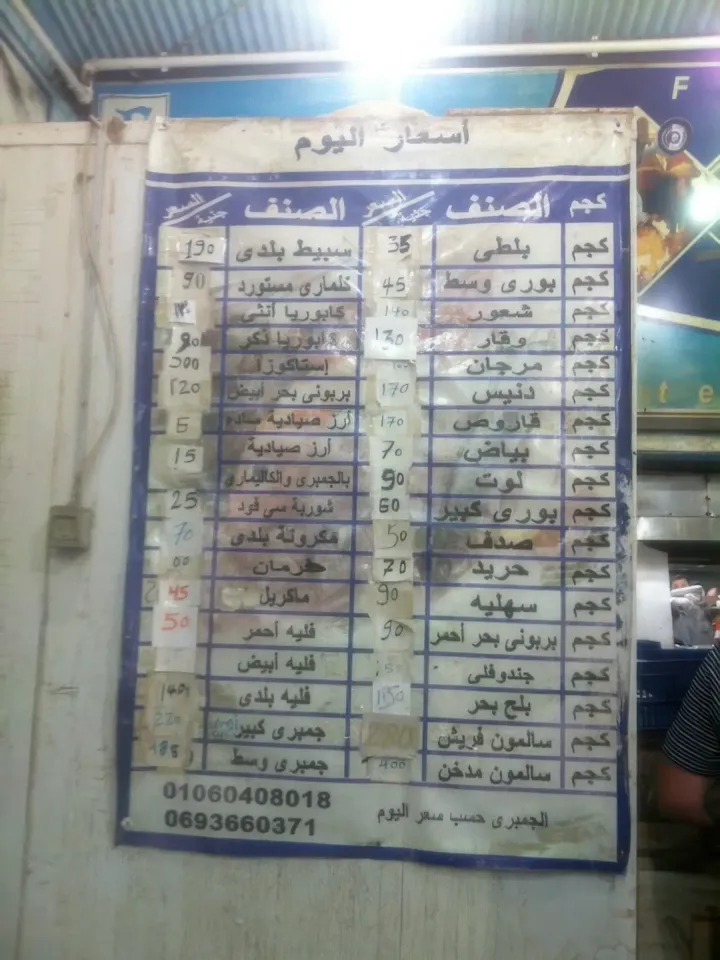 أسعار اليوم
كجم الصنف السعر جنية الصنف السعر جنية
كجم بلطى 35 سبيط بلدى 190
كجم بورى وسط 45 كلمارى مستورد 90
كجم شعور 140 كابوريا أنثى
كجم وقار 130 كابوريا ذكر
كجم مرجان إستاكوزا 300
كجم دنيس 170 بربونى بحر أبيض 120
كجم قاروص 170 أرز صيادية سادة 5
كجم بياض 70 أرز صيادية 15
كجم لوت 90 بالجمبرى والكاليمارى
كجم بورى كبير 60 شوربة سى فود 25
كجم صدف 50 مكرونة بلدى 70
كجم حريد 70 حرمان
كجم سهليه 90 ماكريل 45
كجم بربونى بحر أحمر 90 فليه أحمر 50
كجم جندوفلى فليه أبيض
كجم بلح بحر 150 فليه بلدى 140
كجم سالمون فريش جمبرى كبير 220
كجم سالمون مدخن 400 جمبرى وسط 185
الجمبرى حسب سعر اليوم
01060408018
0693660371
F